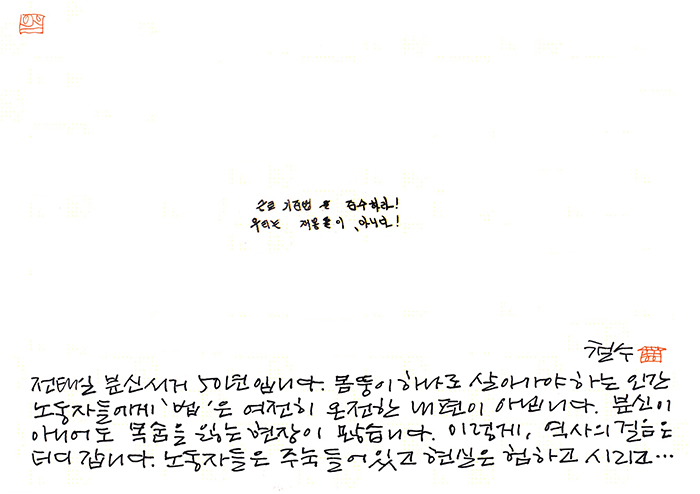 근로 기준법을 준수하라!
우리는 재봉틀이 아니다!
철수
전태일 분신서거 50주년입니다. 몸뚱이 하나로 살아가야 하는 인간
노동자들에게 '법'은 여전히 온전한 내편이 아닙니다. 분신이
아니어도 목숨을 잃는 현장이 많습니다. 이렇게, 역사의 걸음은
더디 갑니다. 노동자들은 주눅들어 있고 현실은 험하고 시리고…